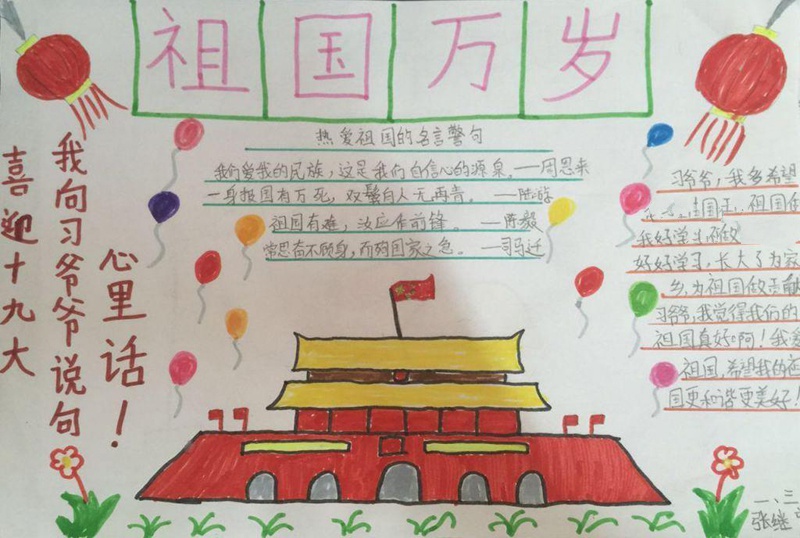 祖国万岁
热爱祖国的名言警句
我们爱我的民族，这是我们自信心的源泉。——周恩来
一身报国有万死，双鬓白人无再青。 ——陆游
祖国有难，汝应作前锋。 ——陈毅
常思奋不顾身，而殉国家之急。 ——司马迁
喜迎十九大
我向习爷爷说句
心里话！
习爷爷，我多希望
祖国
我好学
好好学习，长大了为家
乡，为祖国做贡献
习爷爷，我觉得我们的
祖国真好啊！我爱
祖国，希望我的祖
国更和谐更美好！
一、三
张继